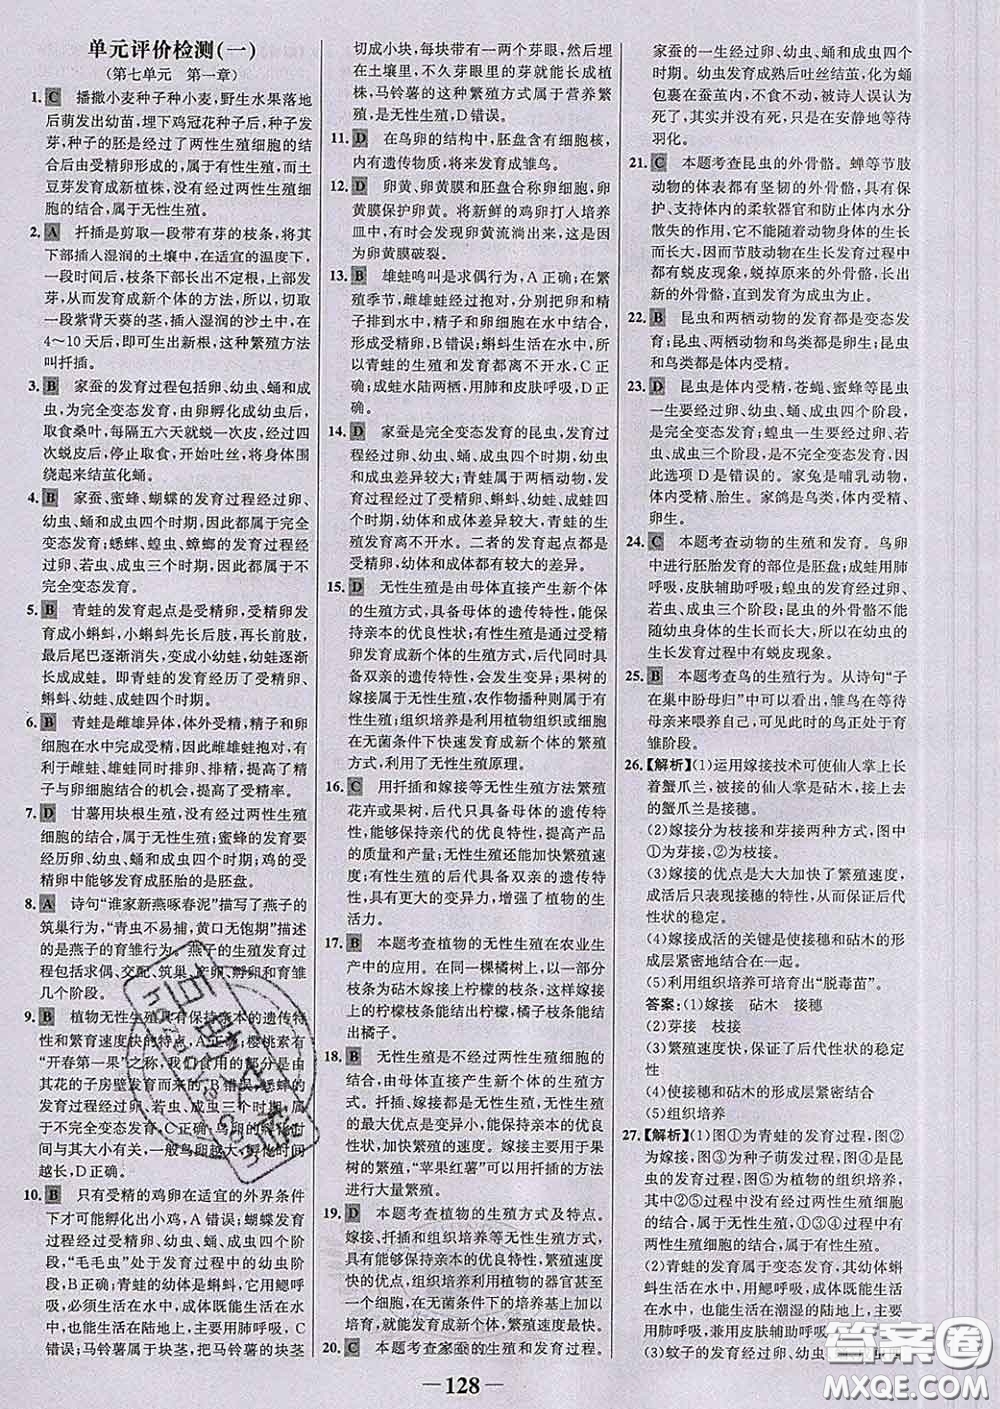 单元评价检测(一)
(第七单元 第一章)
1. C 播撒小麦种子种小麦,野生水果落地
后萌发出幼苗,埋下鸡冠花种子后,种子发
芽,种子的胚是经过了两性生殖细胞的结
合后由受精卵形成的,属于有性生殖,而土
豆芽发育成新植株,没有经过两性生殖细
胞的结合,属于无性生殖。
2. A 扦插是剪取一段带有芽的枝条,将其
下部插入湿润的土壤中,在适宜的温度下,
一段时间后,枝条下部长出不定根,上部发
芽,从而发育成新个体的方法,所以,切取
一段紫背天葵的茎,插入湿润的沙土中,在
4～10天后即可生出新根,这种繁殖方法
叫扦插。
3. B 家蚕的发育过程包括卵、幼虫、蛹和成
虫,为完全变态发育,由卵孵化成幼虫后,
取食桑叶,每隔五六天就蜕一次皮,经四
次蜕皮后,停止取食,开始吐丝,将身体围
绕起来结茧化蛹。
4. B 家蚕、蜜蜂、蝴蝶的发育过程经过卵、
幼虫、蛹和成虫四个时期,因此都属于完全
变态发育;蟋蟀、蝗虫、蟑螂的发育过程经
过卵、若虫、成虫三个时期,因此都属于不
完全变态发育。
5. B 青蛙的发育起点是受精卵,受精卵发
育成小蝌蚪,小蝌蚪先长后肢,再长前肢,
最后尾巴逐渐消失,变成小幼蛙,幼蛙逐渐
长成成蛙。即青蛙的发育经历了受精卵、
蝌蚪、幼蛙、成蛙四个时期。
6. B 青蛙是雌雄异体,体外受精,精子和卵
细胞在水中完成受精,因此雌雄蛙抱对,有
利于雌蛙、雄蛙同时排卵、排精,提高了精
子与卵细胞结合的机会,提高了受精率。
7. D 甘薯用块根生殖,没有经过两性生殖
细胞的结合,属于无性生殖;蜜蜂的发育要
经历卵、幼虫、蛹和成虫四个时期;鸡的受
精卵中能够发育成胚胎的是胚盘。
8. A 诗句“谁家新燕啄春泥”描写了燕子的
筑巢行为,“青虫不易捕,黄口无饱期”描述
的是燕子的育雏行为。燕子的生殖发育过
程包括求偶、交配、筑巢、产卵、孵卵和育雏
几个阶段。
9. B 植物无性生殖具有保持亲本的遗传特
性和繁殖速度快的特点,A正确;樱桃素有
“开春第一果”之称,我们食用的部分是由
其花的子房壁发育而来的,B错误;蟋蟀的
发育经过卵、若虫、成虫三个时期,属于不
完全变态发育,C正确;鸟卵的孵化时间与
其大小有关,一般鸟卵越大,孵化时间越长,D正确。
10. B 只有受精的鸡卵在适宜的外界条件
下才可能孵化出小鸡,A错误;蝴蝶发育
要经过受精卵、幼虫、蛹、成虫四个阶段,
“毛毛虫”处于发育过程中的幼虫阶段,
B正确;青蛙的幼体是蝌蚪,它用鳃呼吸,
必须生活在水中,成体既能生活在水中,
也能生活在陆地上,主要用肺呼吸,C
错误;马铃薯属于块茎,把马铃薯的块茎
切成小块,每块带有一两个芽眼,然后埋
在土壤里,不久芽眼里的芽就长成植
株,马铃薯的这种繁殖方式属于营养繁
殖,是无性生殖,D错误。
11. D 在鸟卵的结构中,胚盘含有细胞核,
内有遗传物质,将来发育成雏鸟。
12. D 卵黄、卵黄膜和胚盘合称卵细胞,卵
黄膜保护卵黄。将新鲜的鸡卵打入培养
皿中,有时会发现卵黄流淌出来,这是因
为卵黄膜破裂。
13. B 雄蛙鸣叫是求偶行为,A正确;在繁
殖季节,雌雄蛙经过抱对,分别把卵和精
子排到水中,精子和卵细胞在水中结合,
形成受精卵,B错误;蝌蚪生活在水中,所
以青蛙的生殖和发育都离不开水,C正
确;成蛙水陆两栖,用肺和皮肤呼吸,D正
确。
14. D 家蚕是完全变态发育的昆虫,发育
过程经历受精卵、幼虫、蛹、成虫,幼虫与
成虫差异较大;青蛙属于两栖动物,发育
过程经历受精卵、蝌蚪、幼蛙、成蛙四个时
期,幼体和成体差异较大,青蛙的生殖发
育离不开水。二者的发育起点都是受精
卵,幼体和成体都有较大的差异。
15. D 无性生殖是由母体直接产生新个体
的生殖方式,具备母体的遗传特性,能保
持亲本的优良性状;有性生殖是由受精
卵发育成新个体的生殖方式,后代同时具
备双亲的遗传特性,会发生变异;果树的
嫁接属于无性生殖,农作物播种则属于有
性生殖;组织培养是利用植物组织或细胞
在无菌条件下快速发育成新个体的繁殖
方式,利用了无性生殖原理。
16. C 用扦插和嫁接等无性生殖方法繁殖
花卉或果树,后代只具备母体的遗传特
性,能够保持亲代的优良特性,提高产品
的质量和产量;无性生殖还能加快繁殖速
度;有性生殖的后代具备双亲的遗传特
性,具有更大的变异力,增强了植物的生
活力。
17. B 本题考查植物的无性生殖在农业生
产中的应用。在同一棵橘树上,以一部分
枝条为砧木嫁接上柠檬的枝条,这样嫁接
上的柠檬枝条能结出柠檬,橘子枝条能结
出橘子。
18. B 无性生殖是不经过两性生殖细胞的
结合,由母体直接产生新个体的生殖方
式。扦插、嫁接都属于无性生殖。无性生
殖的最大优点是变异小,能保持亲本的性
状,加快繁殖的速度。嫁接主要用于果
树的繁殖,“苹果红薯”可利用扦插的方法
进行大量繁殖。
19. D 本题考查植物的生殖方式及特点。
嫁接、扦插和组织培养都属于无性生殖,
能够保持亲本的优良特性,繁殖速度快
的优点。组织培养利用植物的器官甚至
细胞,在无菌条件下的培养基上加以培
育,短期内可获得大量植物。
20. C 本题考查家蚕的生殖和发育过程。
家蚕的一生经过卵、幼虫、蛹和成虫四个
时期。幼虫发育成熟后吐丝结茧,化成蛹
包裹在蚕茧内,不食不动,被诗人误认为
死了,其实并没有死,只是在安静地等待
羽化。
21. C 本题考查昆虫的外骨骼。蝉等节肢
动物的体表都有坚韧的外骨骼,具有保
护、支持体内的柔软器官和防止体内水分
散失的作用,它不会随着动物身体的生长
而长大,因此节肢动物在生长发育过程中
都有蜕皮现象,蜕掉原来的外骨骼,长出
新的外骨骼,直到发育为成虫为止。
22. B 昆虫和两栖动物的发育都是变态发
育;昆虫、两栖动物和鸟类都是卵生;昆
虫和鸟类都是体内受精。
23. D 昆虫是体内受精,苍蝇、蜜蜂等昆虫
一生要经过卵、幼虫、蛹、成虫四个阶段,
是完全变态发育;蝗虫一生要经过卵、若
虫、成虫三个阶段,是不完全变态发育,因
此选项D是错误的。家兔是哺乳动物,
体内受精、胎生。家鸽是鸟类,体内受精、
卵生。
24. C 本题考查动物的生殖和发育。鸟卵
中进行胚胎发育的部位是胚盘;成蛙用肺
呼吸,皮肤辅助呼吸;蝗虫的发育经过卵、
若虫、成虫三个阶段;昆虫的外骨骼不能
随幼虫身体的生长而长大,所以在幼虫的
生长发育过程中有蜕皮现象。
25. B 本题考查鸟的生殖行为。从诗句“子
在巢中盼母归”中可以看出,雏鸟在等待
母亲来喂养自己,可见此时的鸟正处于育
雏阶段。
26.【解析】(1)运用嫁接技术可使仙人掌上长
着蟹爪兰,被接的仙人掌是砧木,接上去
的蟹爪兰是接穗。
(2)嫁接分为枝接和芽接两种方式,图中
①为芽接,②为枝接。
(3)嫁接的优点是大大加快了繁殖速度,
成活后只表现接穗的特性,从而保证后代
性状的稳定。
(4)嫁接成活的关键是使接穗和砧木的形
成层紧密地结合在一起。
(5)利用组织培养可培育出“脱毒苗”。
答案:(1)嫁接 砧木 接穗
(2)芽接 枝接
(3)繁殖速度快,保证了后代性状的稳定
性
(4)使接穗和砧木的形成层紧密结合
(5)组织培养
27.【解析】(1)图①为青蛙的发育过程,图②
为嫁接,图③为种子萌发过程,图④是昆
虫的发育过程;图⑤为植物的组织培养过
程。②⑤都没有经过两性生殖细胞的结
合,属于无性生殖,①③④过程都经过两
性生殖细胞的结合,属于有性生殖。
(2)青蛙的发育属于变态发育,其幼体蝌
蚪生活在水中,用鳃呼吸;成体既能生活
在水中,也能生活在潮湿的陆地上,用肺
呼吸,兼用皮肤辅助呼吸。
(3)蚊子的发育要经过卵、幼虫、蛹、成虫
— 128 —
答案圈
MXQE.COM